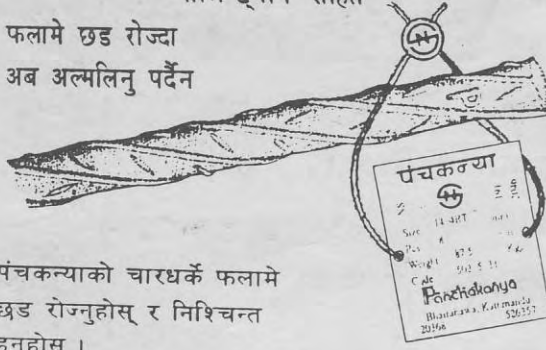 फलामे छड रोज्दा
अब अल्मलिनु पर्दैन
पंचकन्या
Size
Weight
Panchakanya
Bhairahawa, Kathmandu
526357
पंचकन्याको चारधर्के फलामे
छड रोज्नुहोस् र निश्चिन्त
हुनुहोस् ।